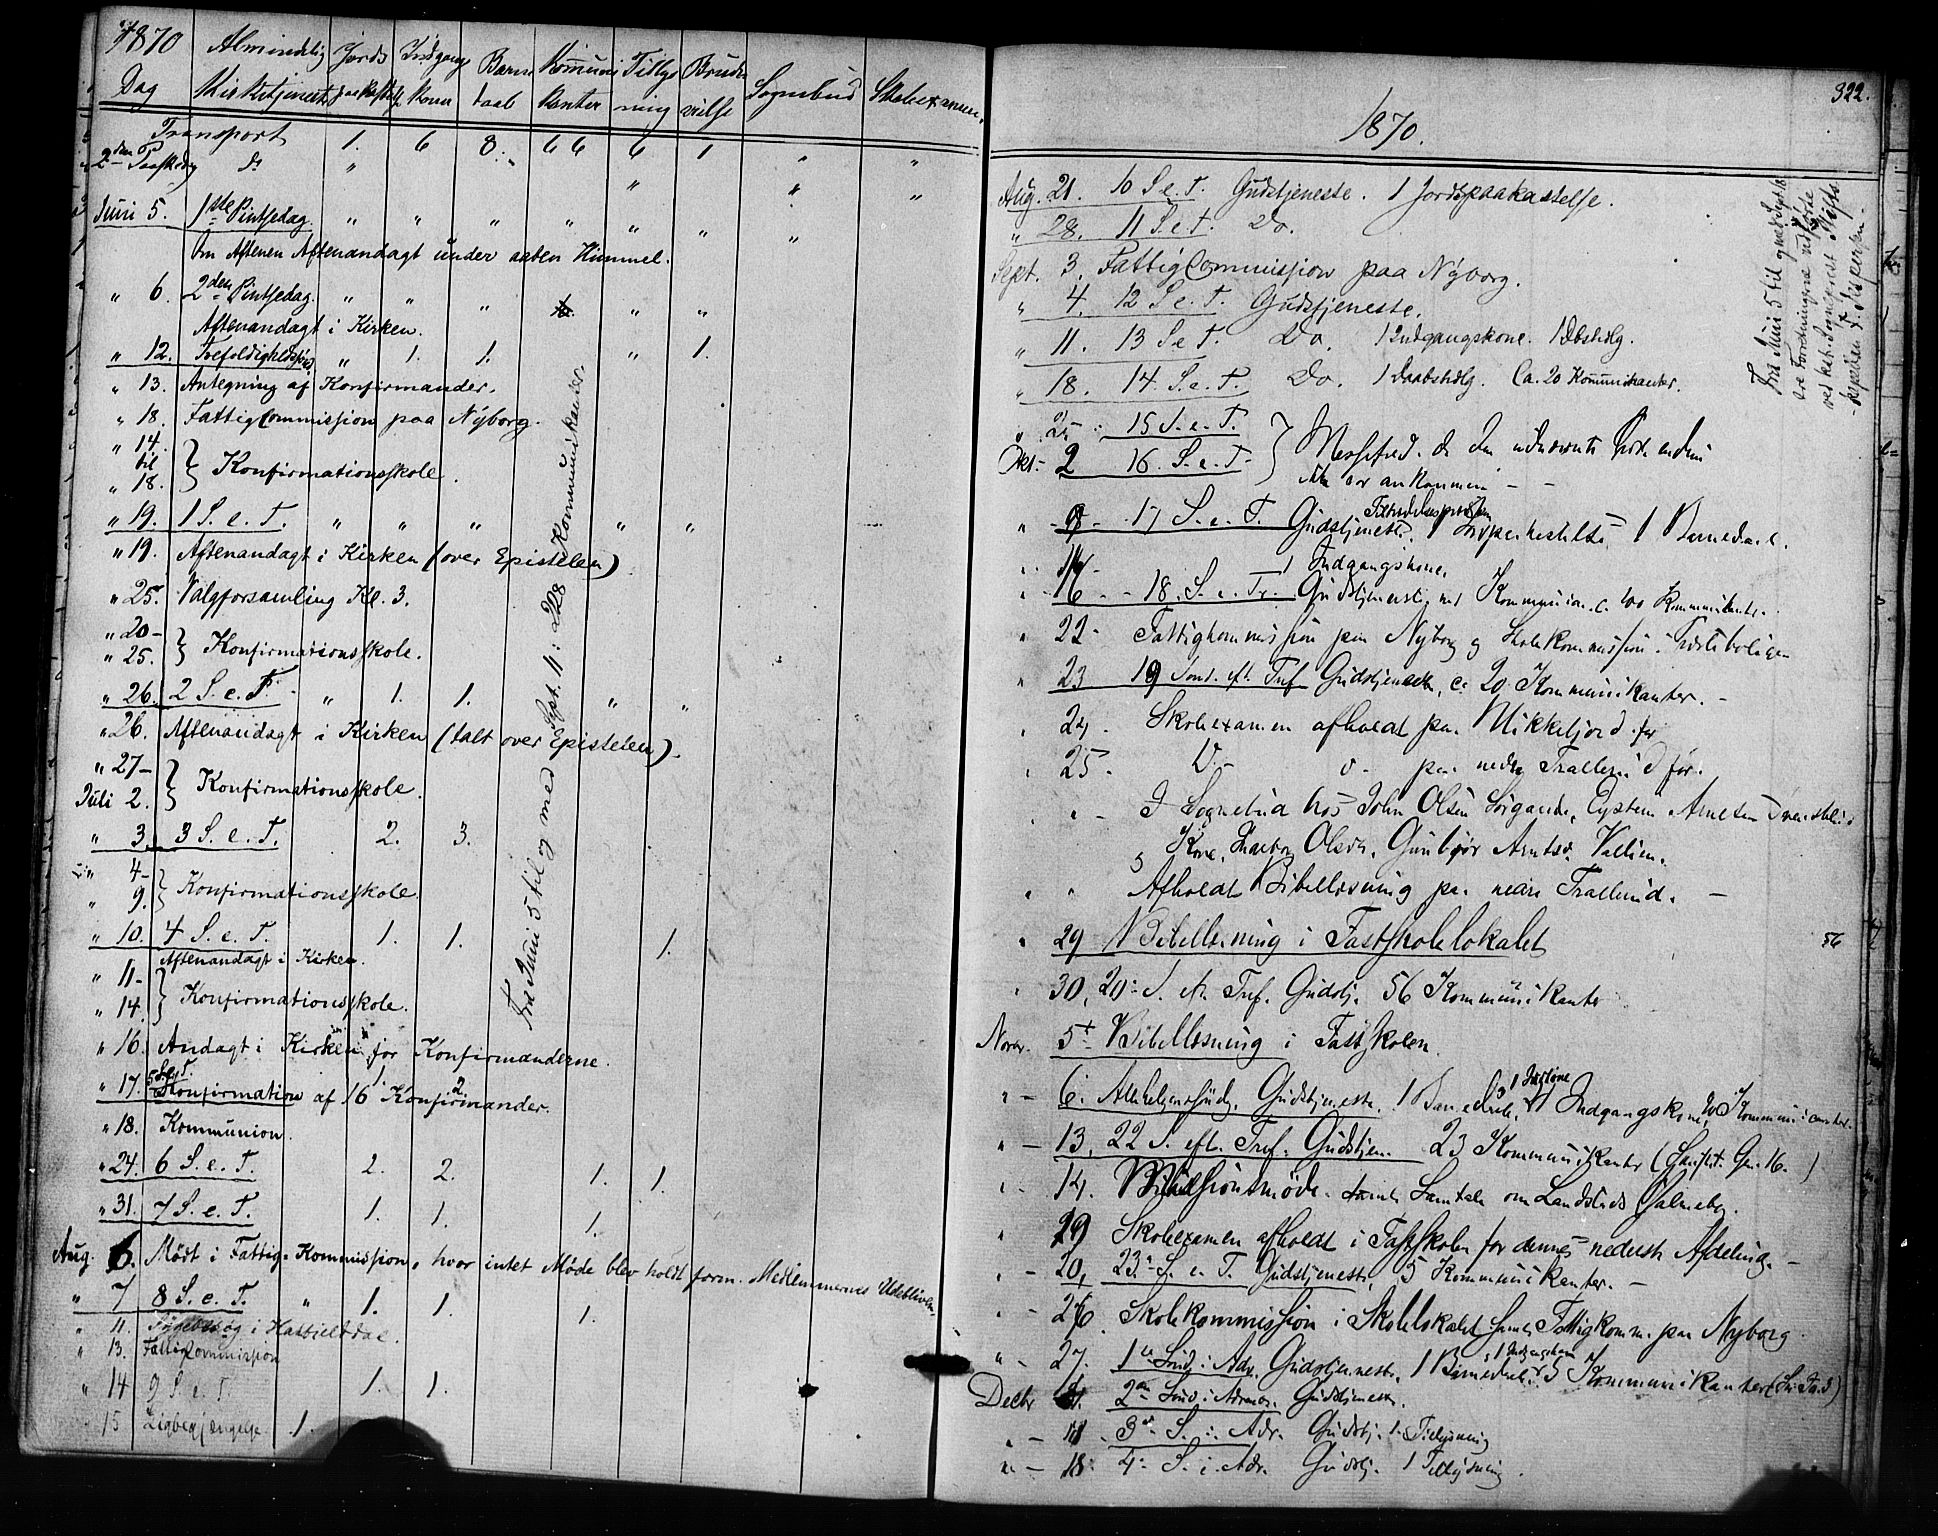 1870
Dag Almindelig Kirketjeneste Jords paakastelse Indgangs koner Barne daab Kommuni kanter Tillys ning Brude vielse Sognebud Skoleexamen.
Transport 1. 6 8. 66 6 1 " "
2den Paaskedag do " " " "
Juni 5. 1ste Pintsedag. " " " " " " "
Om Aftenen Aftenandagt under aaben Himmel.
" 6. 2den Pintsedag. " " " " "
Aftenandagt i Kirken.
" 12. Trefoldighedssønd. " 1. 1. " 1.
" 13. Antegning af Konfirmander.
" 18. FattigCommission paa Nyborg.
" 14. til " 18. } Konfirmationsskole.
" 19. 1 S. e. T. " " " " "
" 19. Aftenandagt i Kirken (over Epistelen)
" 25. Valgforsamling Kl. 3.
" 20- " 25. } Konfirmationsskole.
" 26. 2 S. e. T. " 1. 1. " "
" 26. Aftenandagt i Kirken (talt over Epistelen)
" 27- Juli 2. } Konfirmationsskole.
" 3. 3 S. e. T. 2. 3.
" 4- " 9. } Konfirmationsskole.
" 10. 4 S. e. T. 1. 1. 1.
Aftenandagt i Kirken.
" 11- " 14. } Konfirmationsskole.
" 16. Andagt i Kirken for Konfirmanderne.
" 17. 5 S. e. T. Konfirmation af 16 Konfirmander. 1. 2
" 18. Kommunion.
" 24. 6 S. e. T. 2. 2. 1. 1.
" 31. 7 S. e. T. 1. 1. 1.
Aug. 6. Mødt i Fattig-Kommission, hvor intet Møde blev holdt form. Medlemmernes Udebliven.
" 7 8 S. e. T. " 1. 1. 1.
" 11. Sygebesøg i
" 13. FattigCommission
" 14 9 S. e. T. 1. 1.
" 15 Ligbegjængelse. 1.
Fra Juni 5 til og med Sept. 11: 228 Kommunikanter.
322.
1870.
Aug. 21. 10 S. e. T. Gudstjeneste. 1 Jordspaakastelse.
" 28. 11 S. e. T. Do.
Sept. 3. FattigCommission paa Nyborg.
" 4. 12 S. e. T. Gudstjeneste.
" 11. 13 S. e. T. Do. 1 Indgangskone. 1 Dbshdlg.
18. 14. S. e. T. Do. 1 Daabshdlg. Ca. 20 Kommunikanter.
" 25 15 S. e. T.
Okt. 2 16. S. e. T. } Messefred. da den udnævnte Præst endnu
ikke var ankommen
" 9 - 17 S. e. T. Gudstjeneste. Tiltrædelsespræken 1 1 Barnedaab.
1 Indgangskone.
" 16 - 18. S. e. Tr. Gudstjeneste med Kommunion. c. Kommunikanter.
" 22 - Fattigkommission paa Nyborg og Skolekommission i
" 23 19 Sond. eft. Tref Gudstjeneste, c: 20 Kommunikanter.
" 24. Skoleexamen afholdt paa Mikkeljord for
" 25. D.- o - paa nedre Trallerud for.
" - I Sognebud hos John Olsen Eystein Arnesen
Kone, Olsdr. Gunbjør
" " Afholdt Bibellæsning paa nedre Trallerud.
" 29 Bibellæsning i Fastskolelokalet 56
" 30, 20. S. e. Tref. Gudstj. 56 Kommunikanter
Novr. 5t Bibellæsning i Fastskolen.
" - 6. Allehelgensdag. Gudstjeneste. 1 Barnedaab. 1 Indgangskone, Kommunikanter.
" - 13, 22 S. eft. Tref. Gudstjen. 23 Kommunikanter
" - 14. Missionsmøde samt Samtale om Landstads Salmebog.
" 19 Skoleexamen afholdt i Fastskolen for dennes nederste Afdeling.
" - 20, 23. S. e. T. Gudstjeneste, 5 Kommunikanter.
" - 26 Skolekommission i Skolelokalet samt Fattigkomm. paa Nyborg
" - 27. 1ste Sønd. i Adv. Gudstjeneste, 1 Barnedaab. 1 Indgangskone 5 Kommunikanter
Decbr 4. 2den Sønd. i Advent. Gudstjeneste.
" - 11. 3die S. i Adv. Gudstj. 1 Tillysning
" - 18. 4. S. i Adv. Gudstj. 1 Tillysning.
Fra Juni 5 til og med Septbr
ere Forretningerne udførte
ved
Kapellan J. Aspersen.